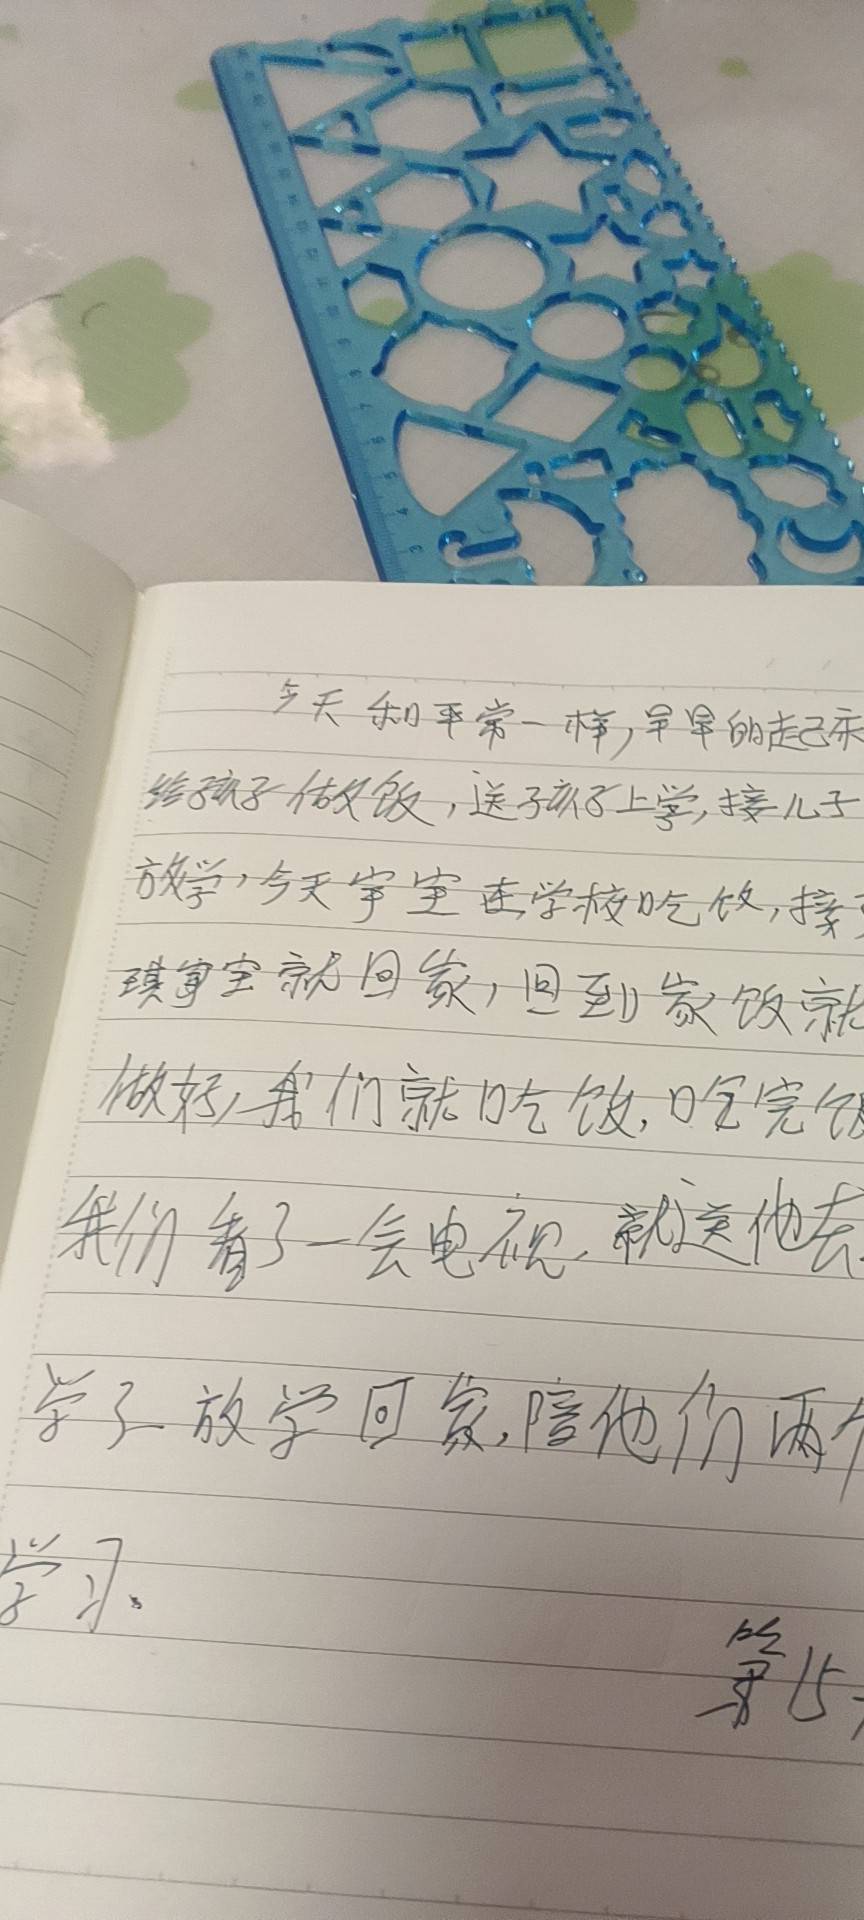 今天和平常一样,早早的起来
给孩子做饭,送孩子上学,接儿子
放学,今天宇宝在学校吃饭,接
琪宝就回家,回到家饭就
做好,我们就吃饭,吃完饭
我们看了一会电视,就送他去
学了,放学回家,陪他们两个
学习、
第15